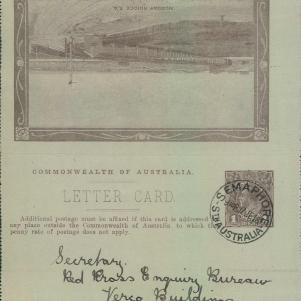 MURRAY BRIDGE, S.A.
COMMONWEALTH OF AUSTRALIA.
LETTER CARD.
Additional postage must be affixed if this card is addressed
any place outside the Commonwealth of Australia to which the
penny rate of postage does not apply.
SEMAPHORE
STH AUSTRALIA
Secretary.
Red Cross Enquiry Bureau
Verco Buildings